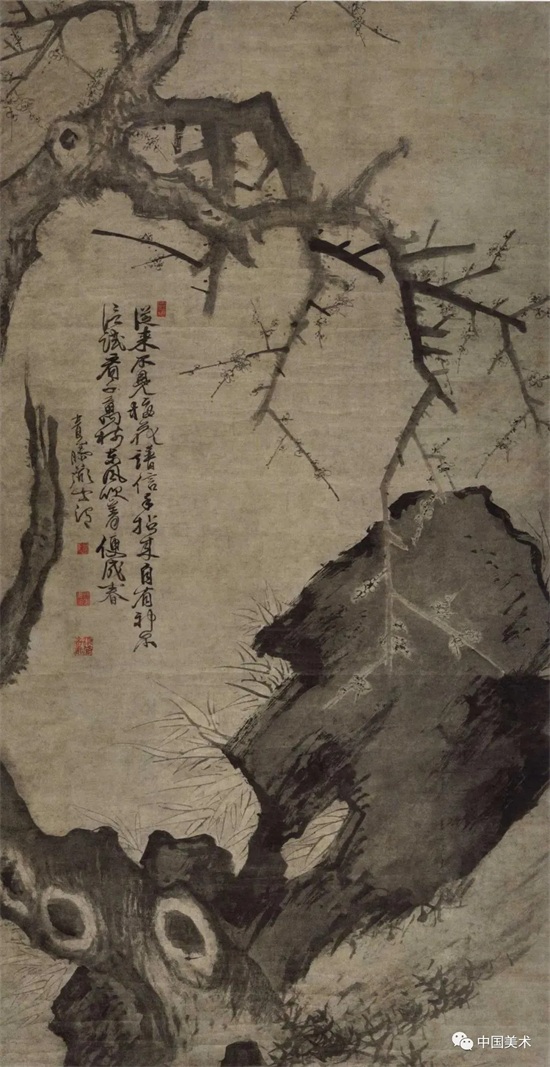 從來不見梅花譜信手拈來自有神不
信試看千萬樹東風吹著便成春
青藤道士渭
中国美术